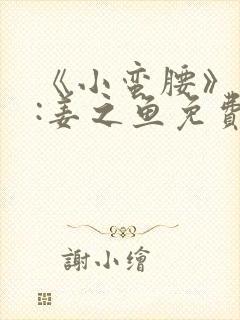 《小蛮腰》
:姜之鱼免費
謝小繪